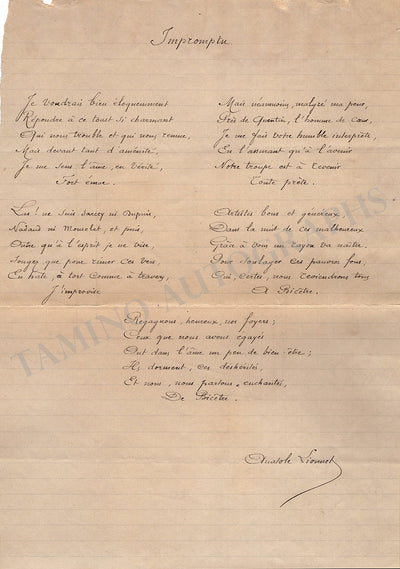 Impromptu
Je voudrais bien éloquemment
Répondre à ce toast si charmant
Qui nous trouble et qui nous remue,
Mais devant tant d'aménité,
Je me sens l'âme, en vérité,
Fort émue.
Las! ne suis Sarcey ni Dupuis,
Nadaud ni Mounet, et puis,
Outre qu'à l'esprit je ne vise,
Songez que pour rimer ces vers,
En hâte, à tort comme à travers,
J'improvise
Mais néanmoins, malgré ma peur,
Près de Quentin, l'homme de cœur,
Je me fais votre humble interprète,
En l'assurant qu'à l'avenir
Notre troupe est à revenir
Toute prête.
Artistes bons et généreux,
Dans la nuit de ces malheureux
Grâce à vous un rayon va naître.
Pour soulager ces pauvres fous,
Oui, certes, nous reviendrons tous
A Bicêtre.
Regagnons, heureux, nos foyers;
Ceux que nous avons égayés
Ont dans l'âme un peu de bien-être;
Ils dorment, ces déshérités,
Et nous, nous partons enchantés,
De Bicêtre.
Anatole Lionnet
TAMINO AUTOGRAPHS